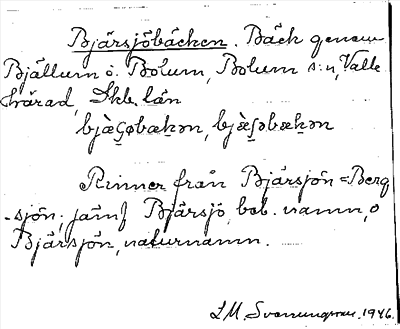 Bjärsjöbäcken. Bäck genom
Bjällum o. Bolum, Bolum s:n, Valle
härad, Skb. län
bjæ̀ʂøbækən, bjæ̀ʂəbækən
Rinner från Bjärsjön = Berg
-sjön; jämf Bjärsjö, beb. namn, o
Bjärsjön, naturnamn.
1946.